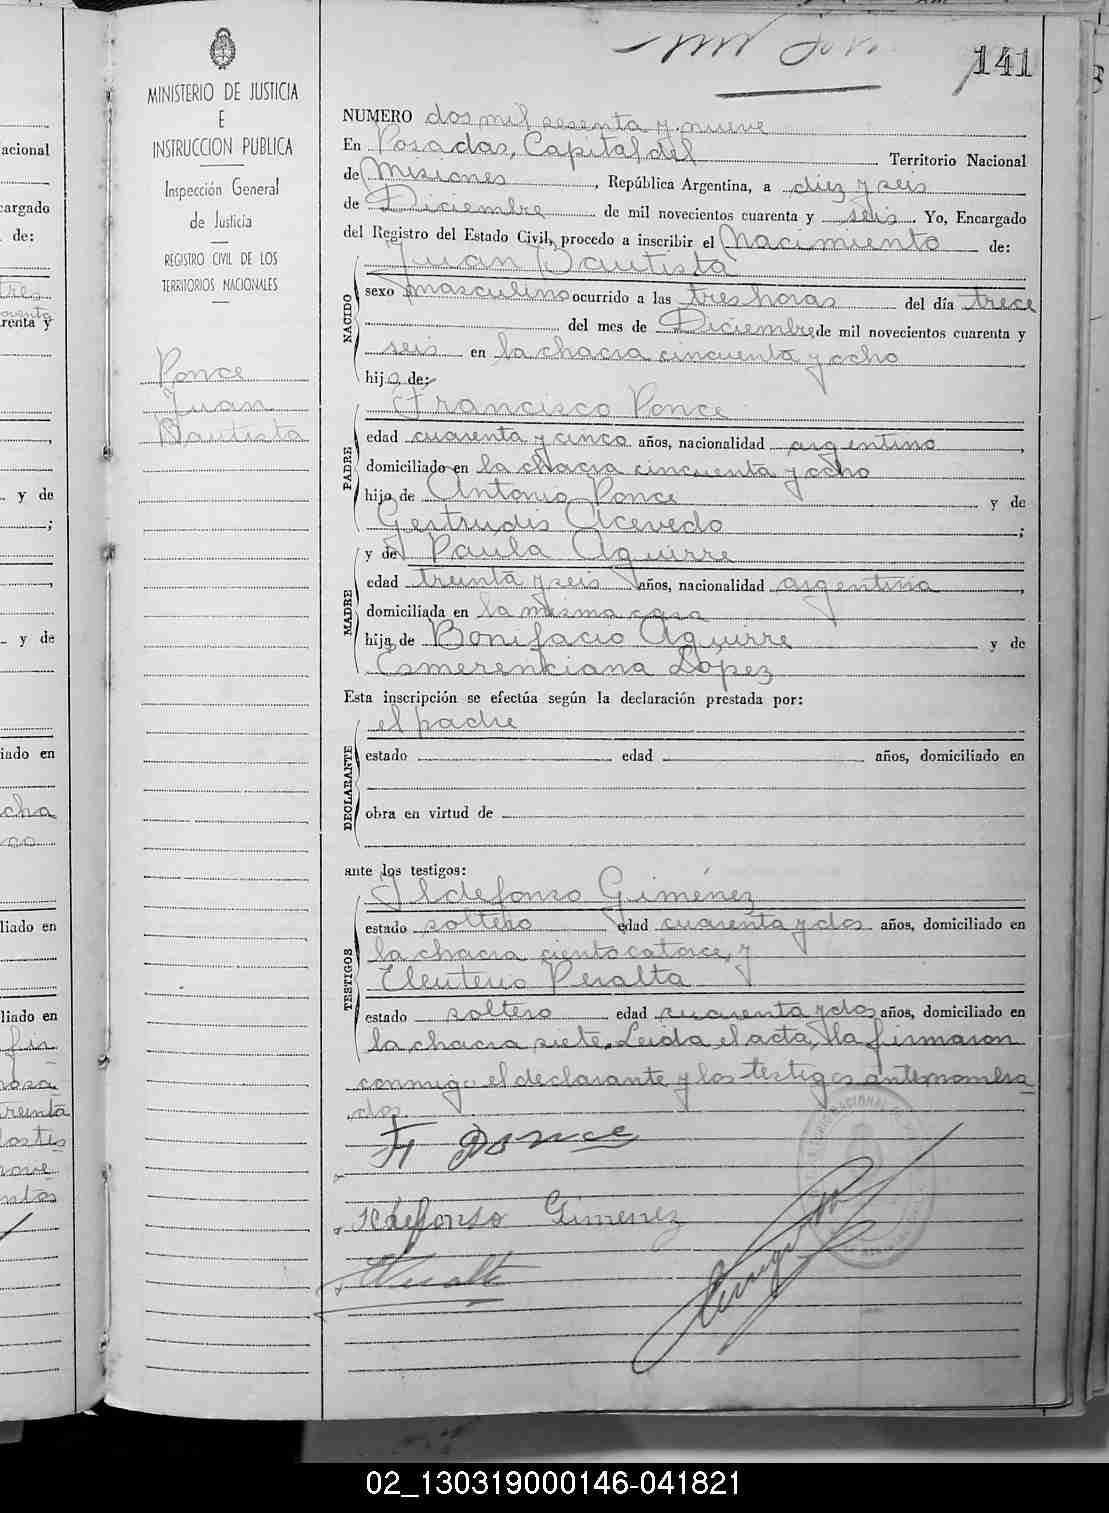 141
MINISTERIO DE JUSTICIA
E
INSTRUCCION PUBLICA
Inspección General
de Justicia
REGISTRO CIVIL DE LOS
TERRITORIOS NACIONALES
Ponce
Juan
Bautista
NUMERO dos mil sesenta y nueve
En Posadas, Capital del Territorio Nacional
de Misiones, República Argentina, a diez y seis
de Diciembre de mil novecientos cuarenta y seis. Yo, Encargado
del Registro del Estado Civil, procedo a inscribir el Nacimiento de:
Juan Bautista
NACIDO
sexo masculino ocurrido a las tres horas del día trece
del mes de Diciembre de mil novecientos cuarenta y
seis en la chacra cincuenta y ocho
hijo de:
Francisco Ponce
PADRE
edad cuarenta y cinco años, nacionalidad argentino,
domiciliado en la chacra cincuenta y ocho
hijo de Antonio Ponce y de
Gertrudis Acevedo;
y de Paula Aguirre
MADRE
edad treinta y seis años, nacionalidad argentina,
domiciliada en la misma casa
hija de Bonifacio Aguirre y de
Esmerenciana López
Esta inscripción se efectúa según la declaración prestada por:
el padre
DECLARANTE
estado edad años, domiciliado en
obra en virtud de
ante los testigos:
Ildefonso Giménez
TESTIGOS
estado soltero edad cuarenta y dos años, domiciliado en
la chacra ciento catorce, y
Eleuterio Peralta
estado soltero edad cuarenta y dos años, domiciliado en
la chacra siete. Leida el acta, la firmaron
conmigo el declarante y los testigos antenombra
dos.
F Ponce
Ildefonso Gimenez
E Peralta
acional
cargado
de:
tres
renta y
y de
;
y de
iado en
cha
co
liado en
liado en
fir
posa
treinta
los tes
nove
ntos
02_130319000146-041821